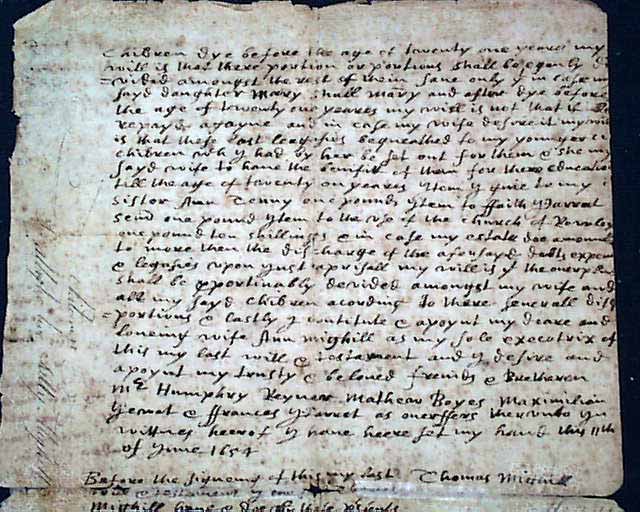 Children dye before the age of twenty one yeares my
will is that there portion or portions shall be equaly
vided amongst the rest of them save only y in case
sayd daughter Mary shall mary and after dye before
the age of twenty one yeares my will is not that it
repayd agayne and in case my wife desire it my will
is that these last legasies bequeathed to my younger
children wch y had by her be set out for them & she my
sayd wife to have the benifit of them for there education
till the age of twenty on yeares ytem y give to my
sister Ann Tenny one pounds ytem to ffaith yarrat
send one pound ytem to the use of the church of Rowley
one pound ten shillings & in case my estate doe amount
to more then the discharge of the aforsayd debts expen
& legasies upon just aprisall my will is y the overplus
shall be proportinably devided amongst my wife and
all my sayd children acording to there severall dis
=portions & lastly y contitute & apoynt my deare and
loveing wife Ann mighill as my sole execotrix of
this my last will & testament and y desire and
apoynt my trusty & beloved frends & Bretheren
Mr Humphry Reyner Mathew Boyes Maximilian
Jewat & ffrances yarret as overssers therunto yn
wittnes heerof y have heere set my hand this 11th
of June 1654
Before the signeing of this my last Thomas Mighill
will & testament y
Mighill have & doe by these presents